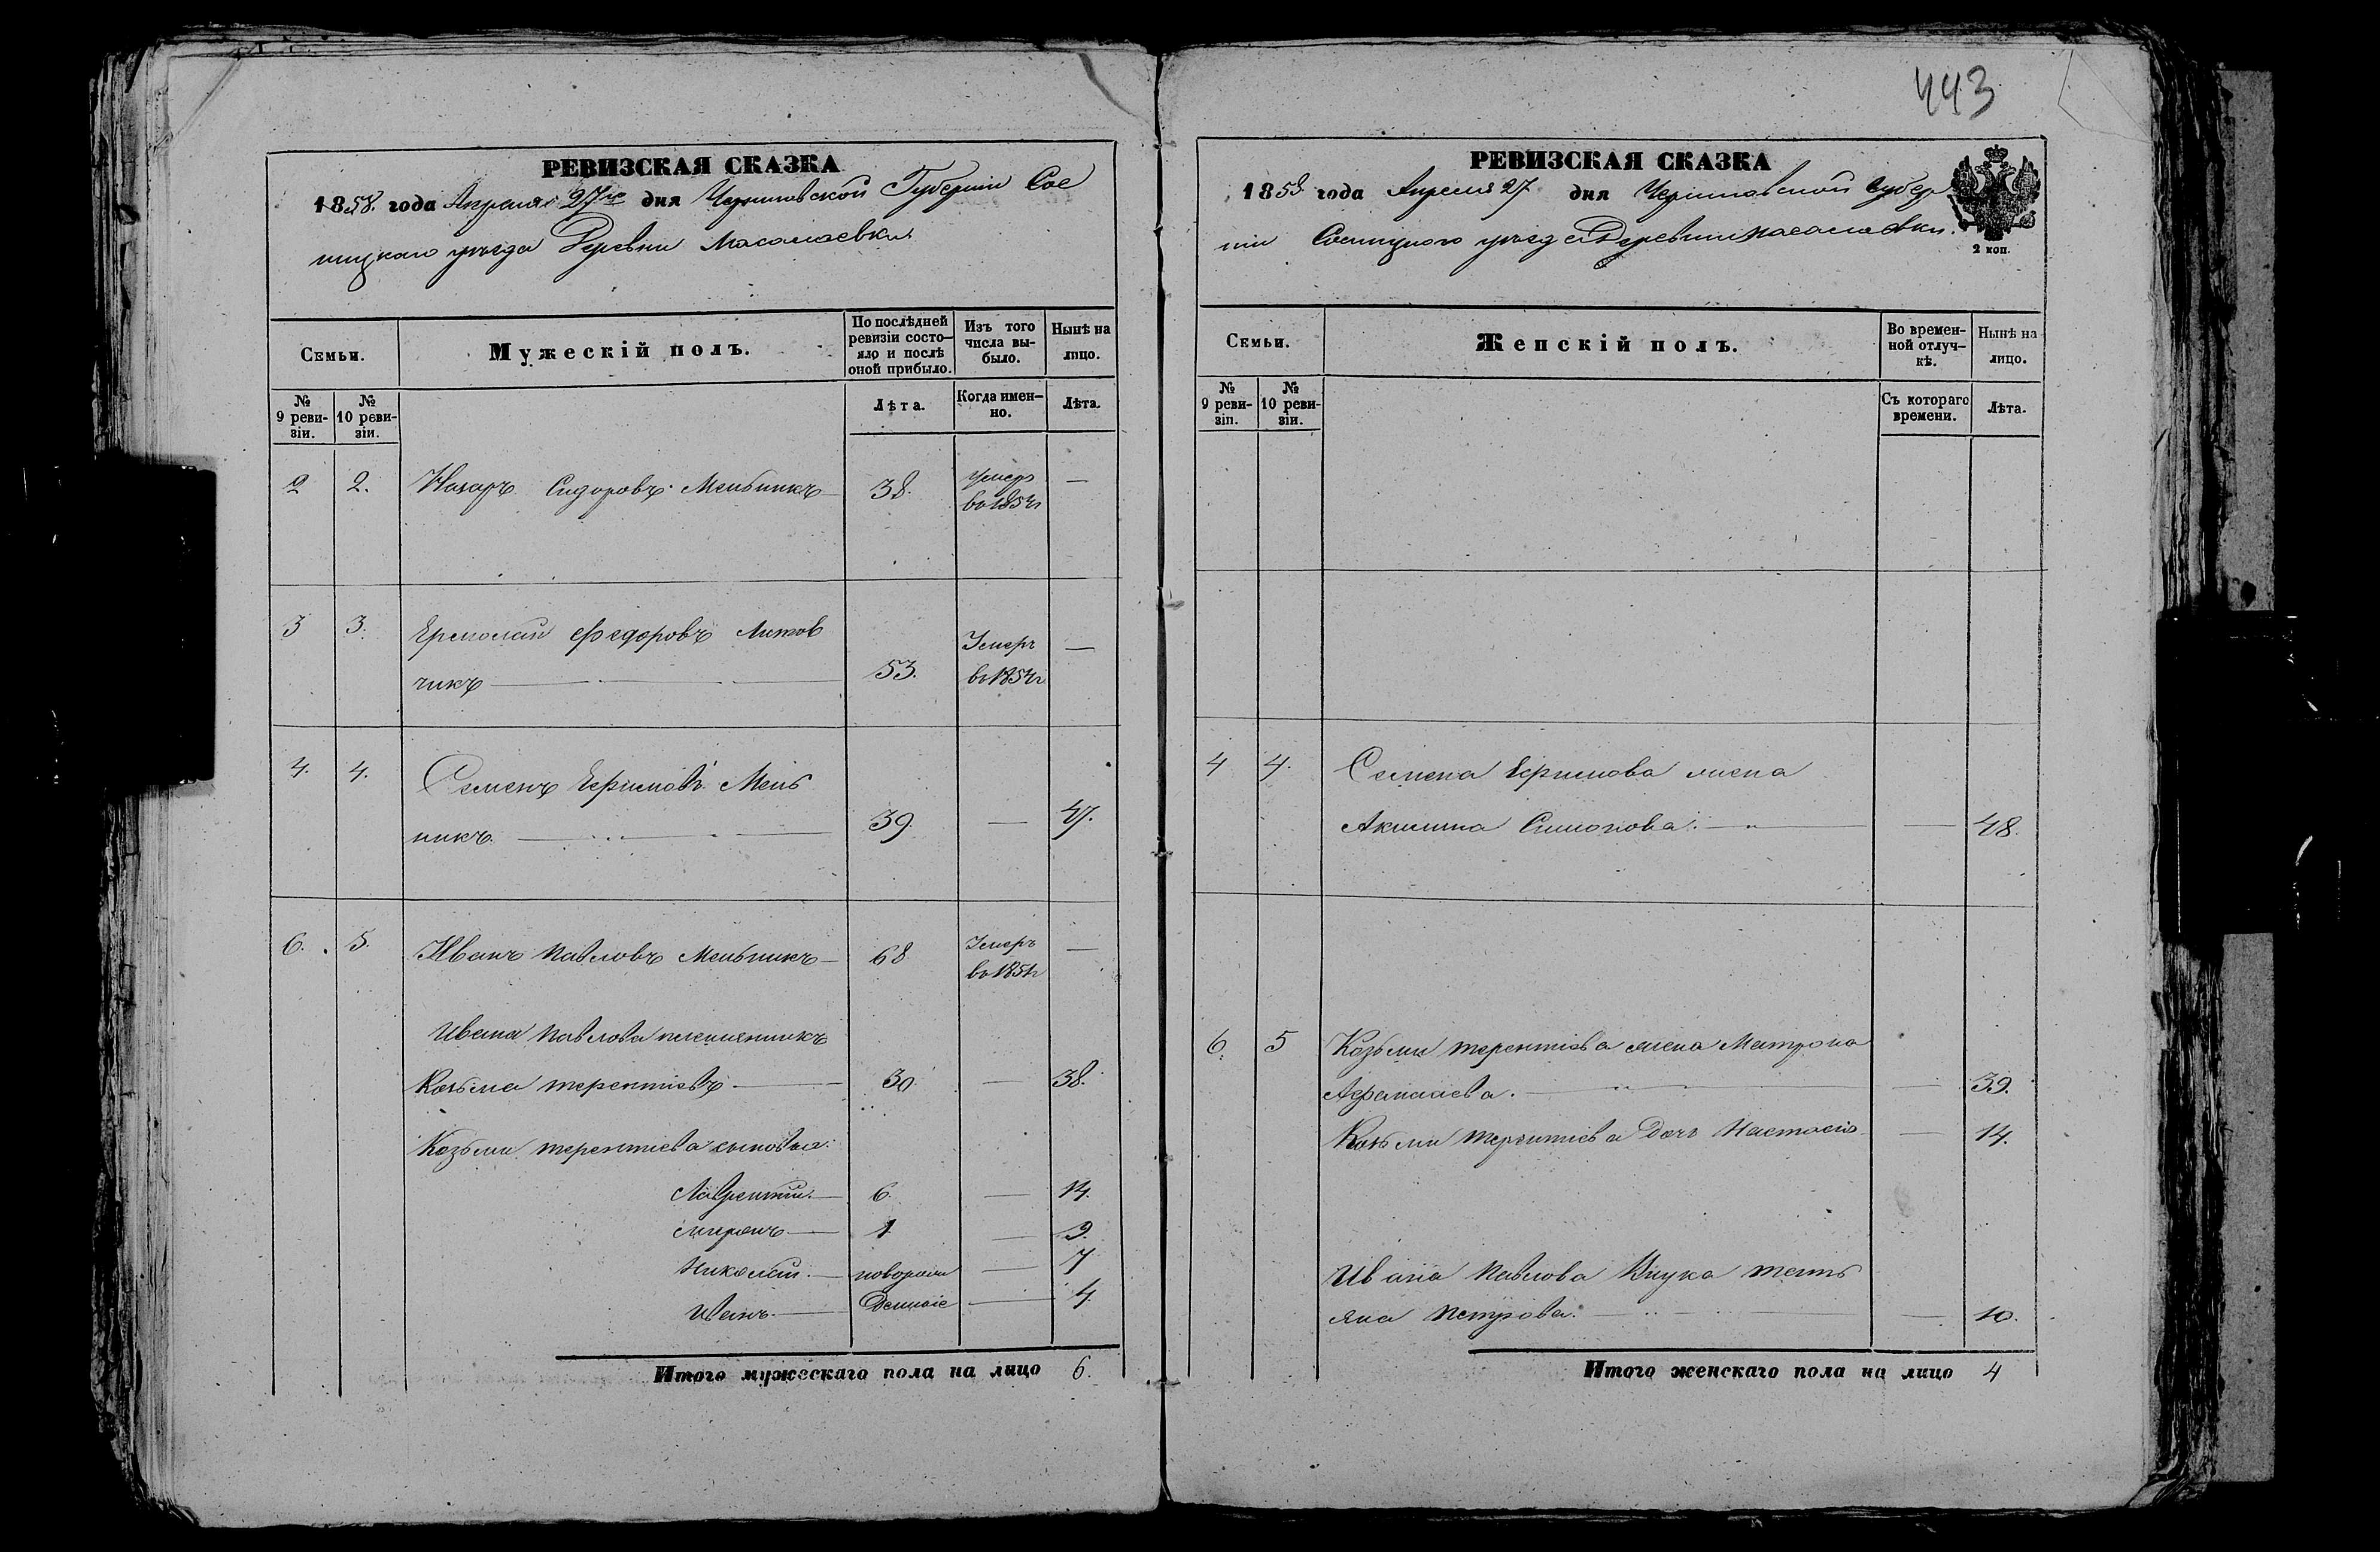 443
РЕВИЗСКАЯ СКАЗКА
1858 года Апреля 27го дня Черниговской Губерніи Сос
ницкаго уезда Деревни Масалаевки
Семьи.
Мужескій полъ.
По послѣдней ревизіи состо-
яло и послѣ оной прибыло.
Изъ того числа вы-
было.
Нынѣ на лицо.
№ 9 реви-
зіи.
№ 10 реви-
зіи.
Лѣта.
Когда имен-
но.
Лѣта.
2 2. Назаръ Сидоровъ Мельникъ 38. умеръ —
в 1854г
3 3. Ермолай Федоровъ Литов Умеръ —
чикъ 53. в 1854г
4. 4. Семенъ Ефимовъ Мель
никъ. 39. — 47.
6. 5. Иванъ Павловъ Мельникъ 68 Умеръ —
в 1851г
Ивана Павлова племянникъ
Козьма терентіевъ 30. — 38.
Козьмы терентіева сыновья:
Лаврентій. 6. — 14.
миронъ 1. — 9.
Николай. новорож — 7
Иванъ. денные — 4.
Итого мужескаго пола на лицо 6.
РЕВИЗСКАЯ СКАЗКА
1858 года Апреля 27 дня Черниговской Губер
ніи Сосницкого уезда Деревни Масалаевки.
2 коп.
Семьи.
Женскій полъ.
Во времен-
ной отлуч-
кѣ.
Нынѣ на лицо.
№ 9 реви-
зіи.
№ 10 реви-
зіи.
Съ котораго времени.
Лѣта.
4 4. Семена Ефимова жена
Акилина Симонова. — 48.
6. 5 Козьмы терентіева жена Матрона
Афанасиева. — 39.
Козьмы терентіева Дочь Настасія — 14.
Ивана Павлова Внука тать
яна Петрова. — 10.
Итого женскаго пола на лицо 4